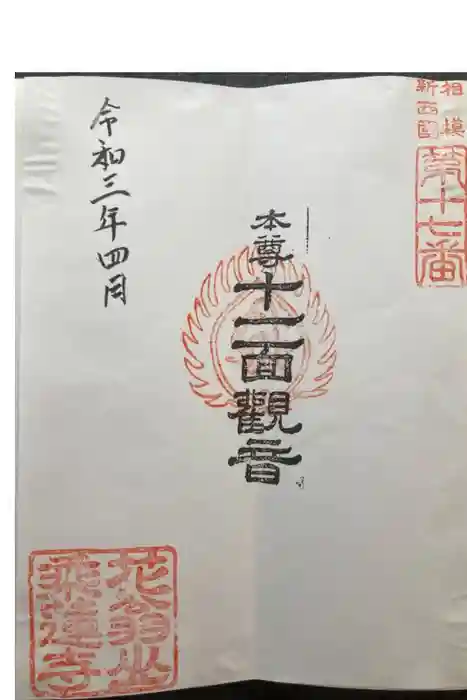 相模
新西国
第十七番
本尊
十一面觀音
令和三年四月
花翁山
乘蓮寺